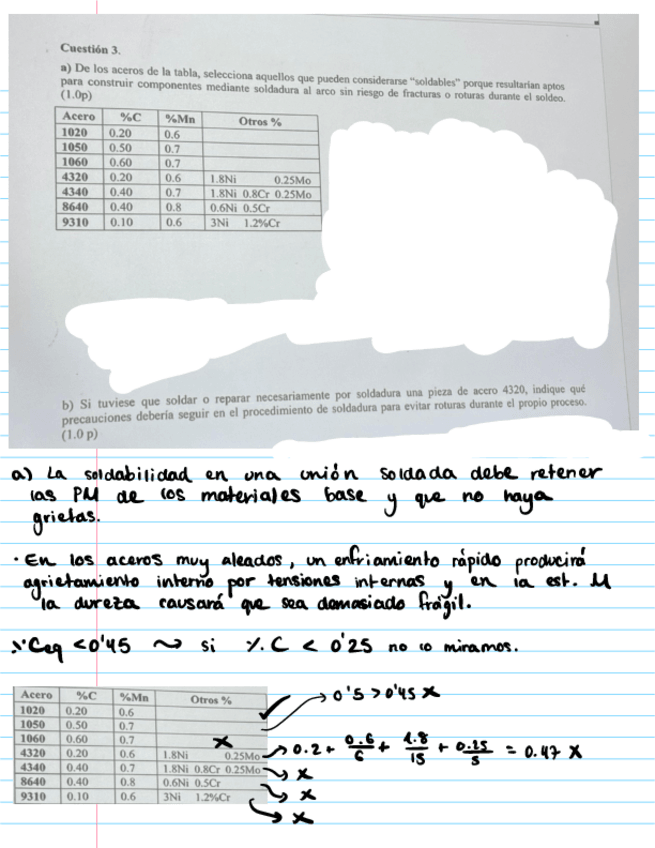 Cuestión 3.
a) De los aceros de la tabla, selecciona aquellos que pueden considerarse "soldables" porque resultarían aptos
para construir componentes mediante soldadura al arco sin riesgo de fracturas o roturas durante el soldeo.
(1.0p)
Acero %C %Mn Otros %
1020 0.20 0.6
1050 0.50 0.7
1060 0.60 0.7
4320 0.20 0.6 1.8Ni 0.25Mo
4340 0.40 0.7 1.8Ni 0.8Cr 0.25Mo
8640 0.40 0.8 0.6Ni 0.5Cr
9310 0.10 0.6 3Ni 1.2%Cr
b) Si tuviese que soldar o reparar necesariamente por soldadura una pieza de acero 4320, indique qué
precauciones debería seguir en el procedimiento de soldadura para evitar roturas durante el propio proceso.
(1.0 p)
a) La soldabilidad en una unión soldada debe retener
las PM de los materiales base y que no haya
grietas.
· En los aceros muy aleados, un enfriamiento rápido producirá
agrietamiento interno por tensiones internas y en la est. M
la dureza causará que sea demasiado frágil.
Ceq < 0'45 ⤳ si %C < 0'25 no lo miramos.
Acero %C %Mn Otros %
1020 0.20 0.6 ✓
1050 0.50 0.7 → 0'5 > 0'45 x
1060 0.60 0.7 x
4320 0.20 0.6 1.8Ni 0.25Mo → 0.2 + 0.6/6 + 1.8/15 + 0.25/5 = 0.47 x
4340 0.40 0.7 1.8Ni 0.8Cr 0.25Mo → x
8640 0.40 0.8 0.6Ni 0.5Cr → x
9310 0.10 0.6 3Ni 1.2%Cr → x